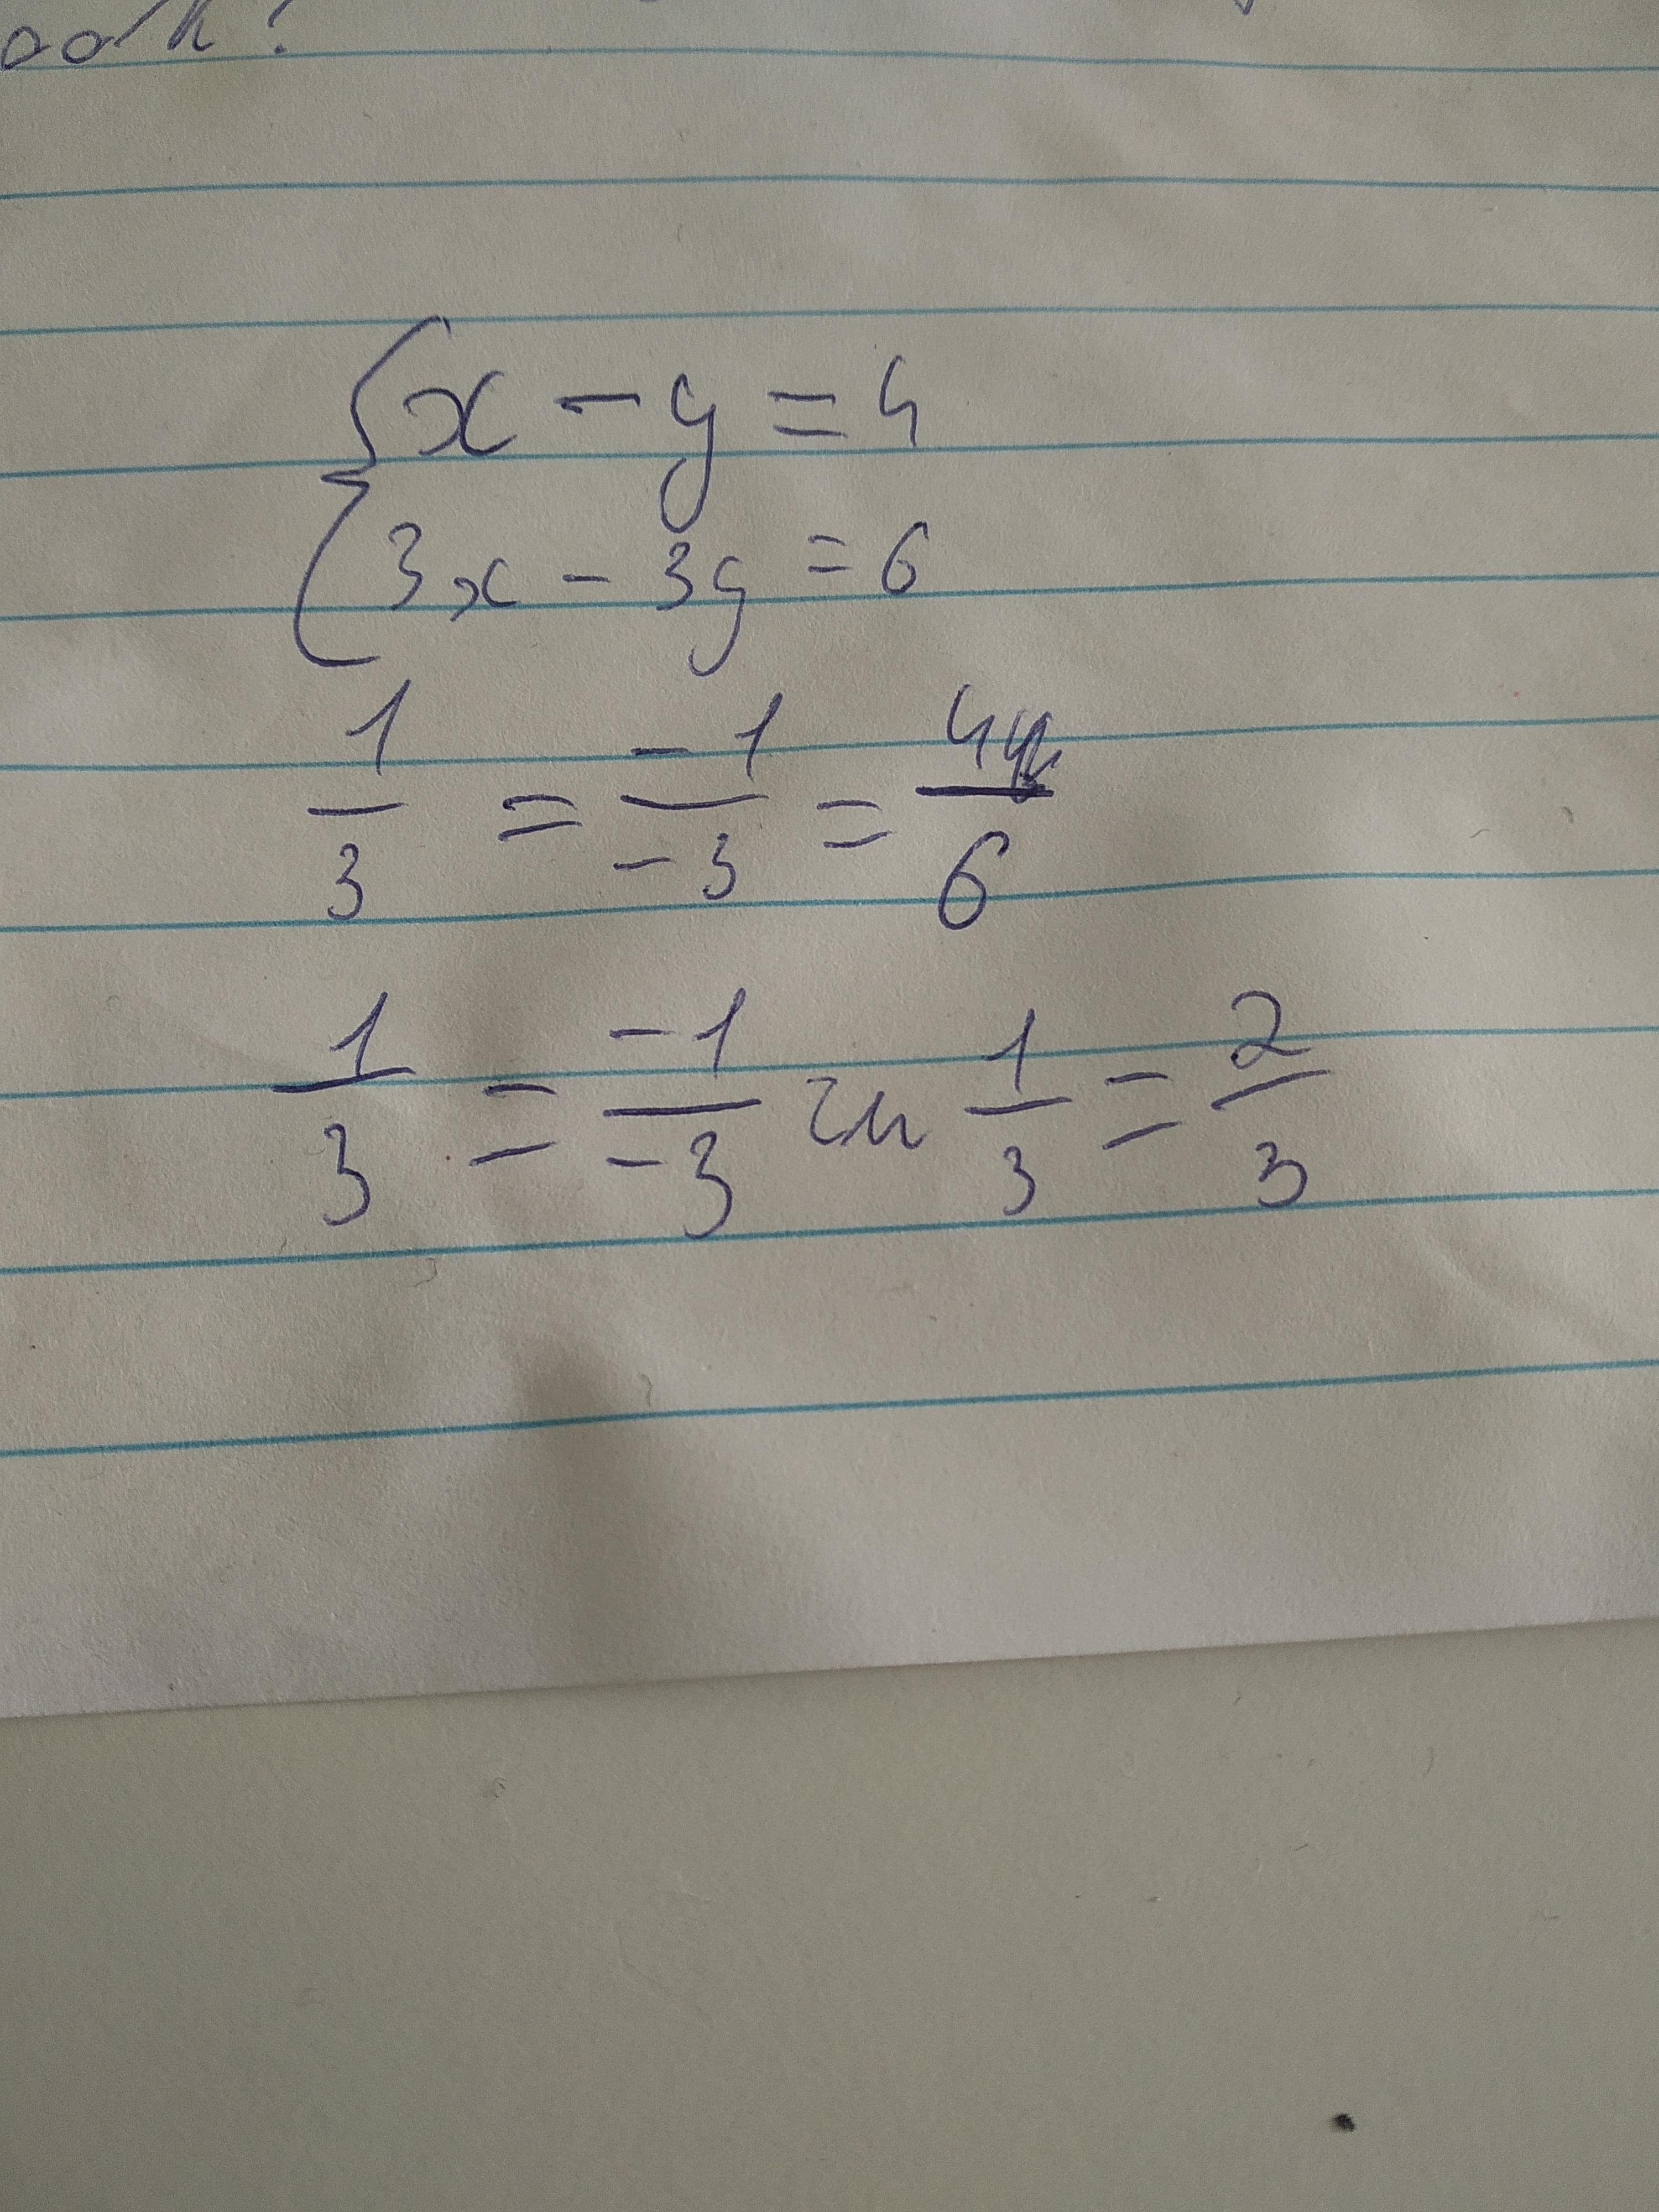 ook?
{x - y = 4
3x - 3y = 6
1/3 = -1/-3 = 4/6
1/3 = -1/-3 či 1/3 = 2/3